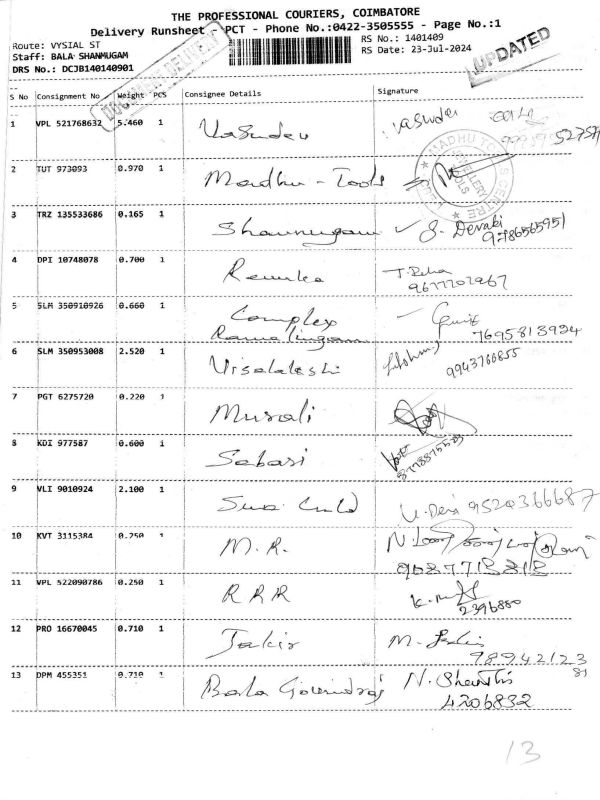 THE PROFESSIONAL COURIERS, COIMBATORE
Delivery Runsheet - PCT - Phone No.:0422-3505555 - Page No.:1
Route: VYSIAL ST
Staff: BALA SHANMUGAM
DRS No.: DCJB140140901
RS No.: 1401409
RS Date: 23-Jul-2024
UPDATED
DELIVERY
S No Consignment No Weight PCS Consignee Details Signature
1 VPL 521768632 5.460 1 Vasudev Vasudev
2 TUT 973093 0.970 1 Madhu - Tools
MADHU CENTRE
3 TRZ 135533686 0.165 1 Shanmugam S. Devaki
9786565951
4 DPI 10748078 0.700 1 Renuka
9677202967
5 SLM 350910926 0.660 1 Complex
Ramalingam 7695813934
6 SLM 350953008 2.520 1 Visalakshi
9943760855
7 PGT 6275720 0.220 1 Murali
8 KDI 977587 0.600 1 Sabari
9 VLI 9010924 2.100 1 U. Devi 9524366687
10 KVT 3115384 0.250 1 M. R.
9087718818
11 VPL 522090786 0.250 1 R R R
2396880
12 PRO 16670045 0.710 1 Jakir
98942123
81
13 DPM 455351 0.710 1 Bala Govindraj N. Shanthi
4206832
13